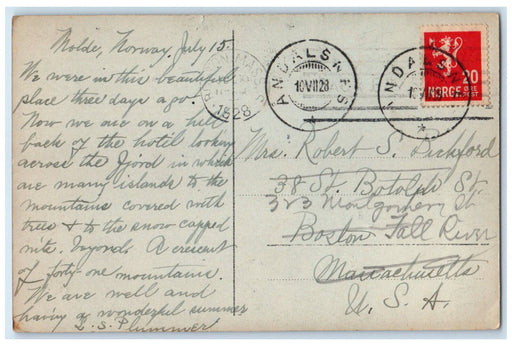 Molde, Norway, July 15.
We were in this beautiful
place three days ago.
Now we are on a hill
back of the hotel looking
across the fjord in which
are many islands to the
mountains covered with
trees & to the snow capped
mts. beyond. A crescent
of forty-one mountains.
We are well and
having a wonderful summer
L. S. Plummer
1928
ANDALSNES
16 VII 28
ANDALSNES
20
NORGE
POST
Mrs. Robert S. Pickford
38 St. Botolph St.
323 Montgomery St
Boston Fall River
Massachusetts
U. S. A.